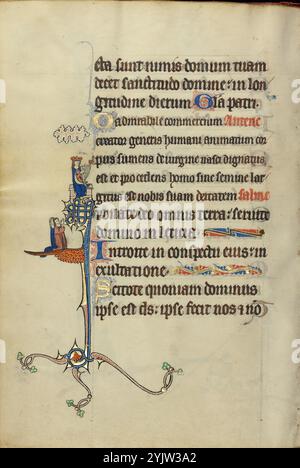 cta sunt nimis domum tuam
decet sanctitudo domine: in lon
gitudine dierum Gla patri.
O admirabile commercium Antene
creator generis humani animatum cor
pus sumens de virgine nasci dignatus
est et procedens homo sine semine lar
gitus est nobis suam deitatem
iubilate deo omnis terra: seruite
domino in leticia.
Introite in conspectu eius: in
exultatione.
Scitote quoniam dominus
ipse est deus: ipse fecit nos i no
alamy
Image ID: 2YJW3A2
www.alamy.com